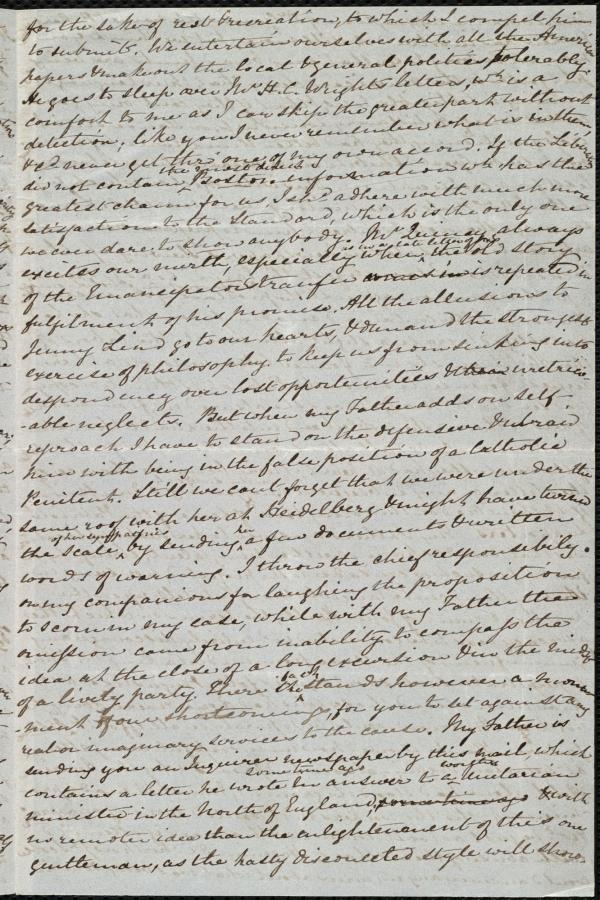 for the sake of rest & recreation, to which I compel him
to submit. We entertain ourselves with all the American
papers & make out the local & general politics tolerably.
He goes to sleep over Mr H. C. Wright's letters, wh. is a
comfort to me as I can skip the greater part without
detection; like you I never remember what is in them,
& cd never get thro' one of my own accord. If the Liberator
did not contain the most direct Boston information wh. has the
greatest charm for us, I shd adhere with much more
satisfaction to the Standard, which is the only one
we ever dare to show anybody. Mr Quincy always
excites our mirth, especially when, as in a late letter of his, the old story
of the Emancipator transfer is repeated in
fulfilment of his promise. All the allusions to
Jenny Lind go to our hearts, & demand the strongest
exercise of philosophy to keep us from sinking into
despondency over lost opportunities & irretriev-
-able neglects. But when my Father adds on self-
reproach I have to stand on the defensive & upbraid
him with being in the false position of a Catholic
Penitent. Still we cant forget that we were under the
same roof with her at Heidelberg & might have turned
the scale of her sympathies by sending her a few documents & written
words of warning. I throw the chief responsibily.
on my companions for laughing the proposition
to scorn in my case, while with my Father the
omission came from inability to compass the
idea at the close of a long excursion & in the midst
of a lively party. There the fact stands however a monu-
-ment of our shortcomings, for you to set against any
real or imaginary services to the cause. My Father is
sending you an Inquirer newspaper by this mail, which
contains a letter he wrote some time ago in answer to a worthy Unitarian
minister in the North of England, some time ago & with
no remoter idea than the enlightenment of this one
gentleman, as the hasty disconnected style will show.